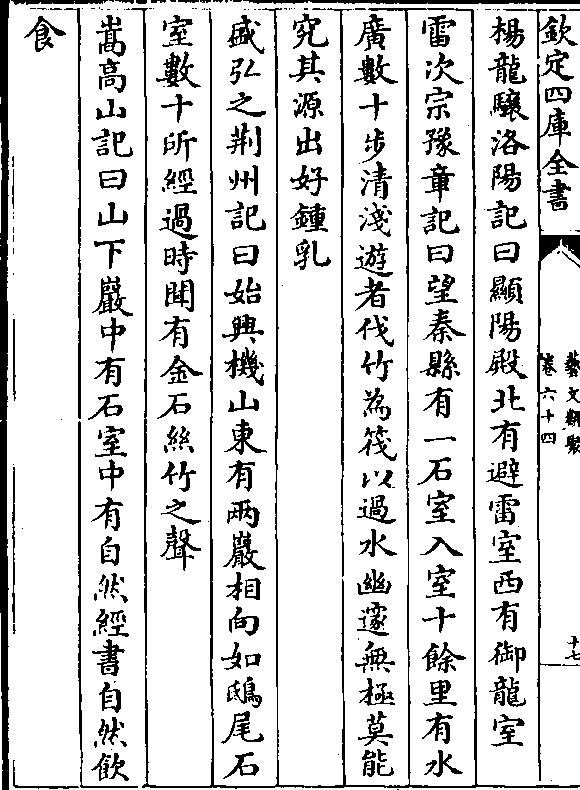 欽定四庫全書
藝文類聚
卷六十四
十七
楊龍驤洛陽記曰顯陽殿北有避雷室西有御龍室
雷次宗豫章記曰望秦縣有一石室入室十餘里有水
廣數十步清淺遊者伐竹為筏以過水幽邃無極莫能
究其源出好鍾乳
盛弘之荆州記曰始興機山東有兩巖相向如鴟尾石
室數十所經過時聞有金石絲竹之聲
嵩高山記曰山下巖中有石室中有自然經書自然飲
食